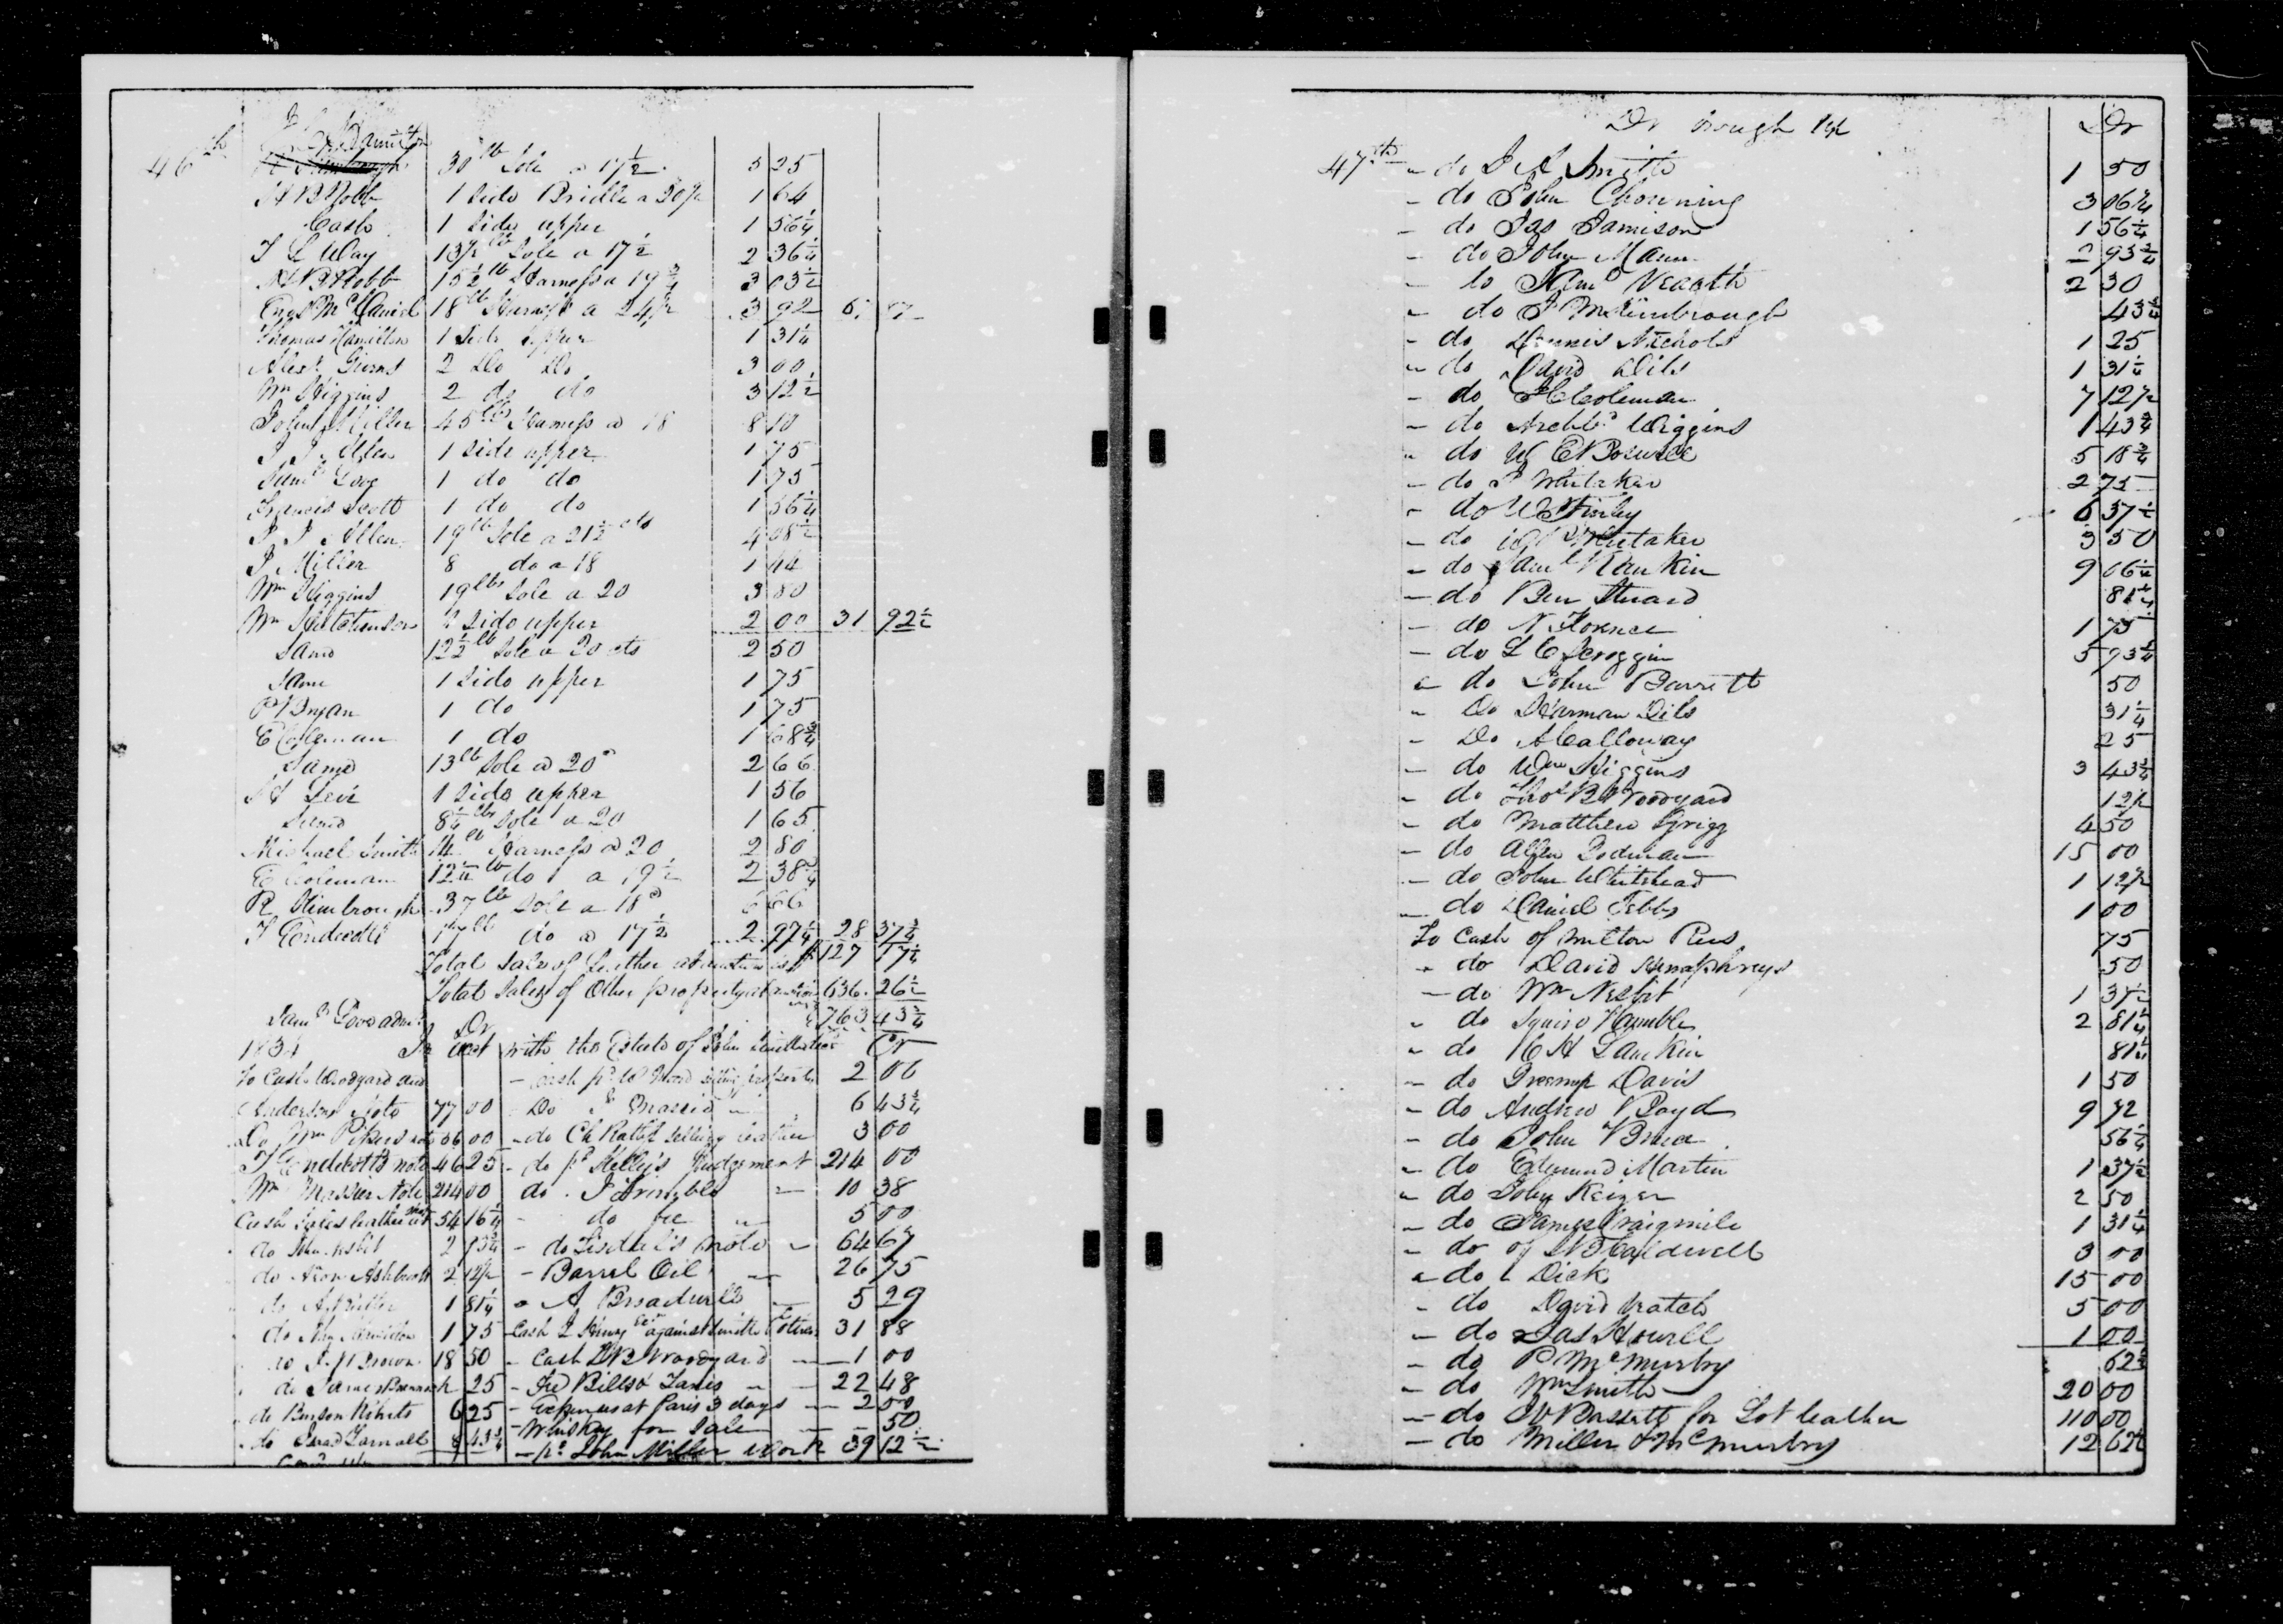 46th
30 lb Sole a 17½ 5 25
H B Robb 1 Side Bridle a 20 1 64
Cash 1 side upper 1 56¼
T L Way 13½ lb Sole a 17½ 2 36¼
H B Robb 15½ lb Harness a 19¾ 3 03½
McDaniel 18 lb Harness a 3 92
Thomas Hamilton 1 Side upper 1 31¼
Alexr Givens 2 Do Do 3 00
Wm Higgins 2 do do 3 12½
John Miller 45 lbs Harness a 18 8 10
J J Allen 1 side upper 1 75
Saml Love 1 do do 1 75
Francis Scott 1 do do 1 56¼
J J Allen 19 lb Sole a 21½ cts 4 08½
J Miller 8 do a 18 1 44
Wm Higgins 19 lbs Sole a 20 3 80
Wm Hutchinson side upper 2 00 31 92½
Same 12½ lb Sole a 20 cts 2 50
Same 1 side upper 1 75
P Bryan 1 do 1 75
E Coleman 1 do 1 68¾
Same 13 lb Sole a 20 2 66
Levi 1 side upper 1 56
Same 8¼ lbs Sole a 20 1 65
Michael Smith 14 lb Harness a 20 2 80
E Coleman lb do a 19½ 2 38¾
R Kimbrough 37 lb Sole a 18 6 66
T Endicott 17 lb do a 17½ 2 97¼ 28 37¾
Total Sales of leather 127 17¼
Total Sales of Other property 636 26½
763 43¾
Saml Love admr Dr
In acct with the Estate of John Cr
To Cash Woodyard and - cash pd property 2 00
Andersons Note 77 00 - Do Massie 6 43¾
Do Wm Pikes 00 - do Ch selling leather 3 00
T Endicotts note 46 25 - do pd Kelly's Judgement 214 00
Wm Massies Note 214 00 do J Trimble 10 38
Cash sales leather 54 16¼ do fee 5 00
do John Nesbit 2 93¾ - do note 64 67
do Aron Ashbrook 2 12½ - Barrel Oil 26 75
do 1 81¼ - A Broadwell 5 29
do 1 75 - Cash against Smith & others 31 88
do Brown 18 50 - Cash Woodyard 1 00
do James 25 - Fee Bills & Taxes 22 48
do Benson Roberts 6 25 - Expenses at Paris 3 days 2 00
do 8 43¾ - Whiskey for Sale 50
- pd John Miller Work 39 12½
Dr brought up Dr
47th - do Smith 1 50
- do John Chowning 3 06¼
- do Jas Jamison 1 56¼
- do John Mann 2 93¾
- to Saml Veatch 2 30
- do Kimbrough 43¾
- do Dennis Nichols 1 25
- do David Dils 1 31¼
- do Coleman 7 12½
- do Archbd Wiggins 1 43¾
- do W E Boswell 5 18¾
- do Whitaker 2 75
- do W Finley 6 37½
- do Whitaker 3 50
- do Saml Rankin 9 06¼
- do Ben Stuard 81¼
- do N Florence 1 75
- do L C Scroggin 5 93¾
- do John Barrett 50
- Do Harman Dils 31¼
- Do A Calloway 25
- do Wm Higgins 3 43¾
- do Thos B Woodyard 12½
- do Matthew Grigg 4 50
- do Allen 15 00
- do John Whitehead 1 12½
- do Daniel Tebbs 1 00
To Cash of Milton Rees 75
- do David Humphreys 50
- do Wm Nesbit 1 37½
- do Squire Humble 2 81¼
- do H Lamkin 81¼
- do Davis 1 50
- do Andrew Boyd 9 72
- do John Bruce 56¼
- do Edmund Martin 1 37½
- do Keizer 2 50
- do James Craigmile 1 31¼
- do of Caldwell 3 00
- do Dick 15 00
- do David Veatch 5 00
- do Jas Howell 1 00
- do P McMurtry 62½
- do Wm Smith 20 00
- do Bassett for Lot leather 110 00
- do Miller & McMurtry 12 62½